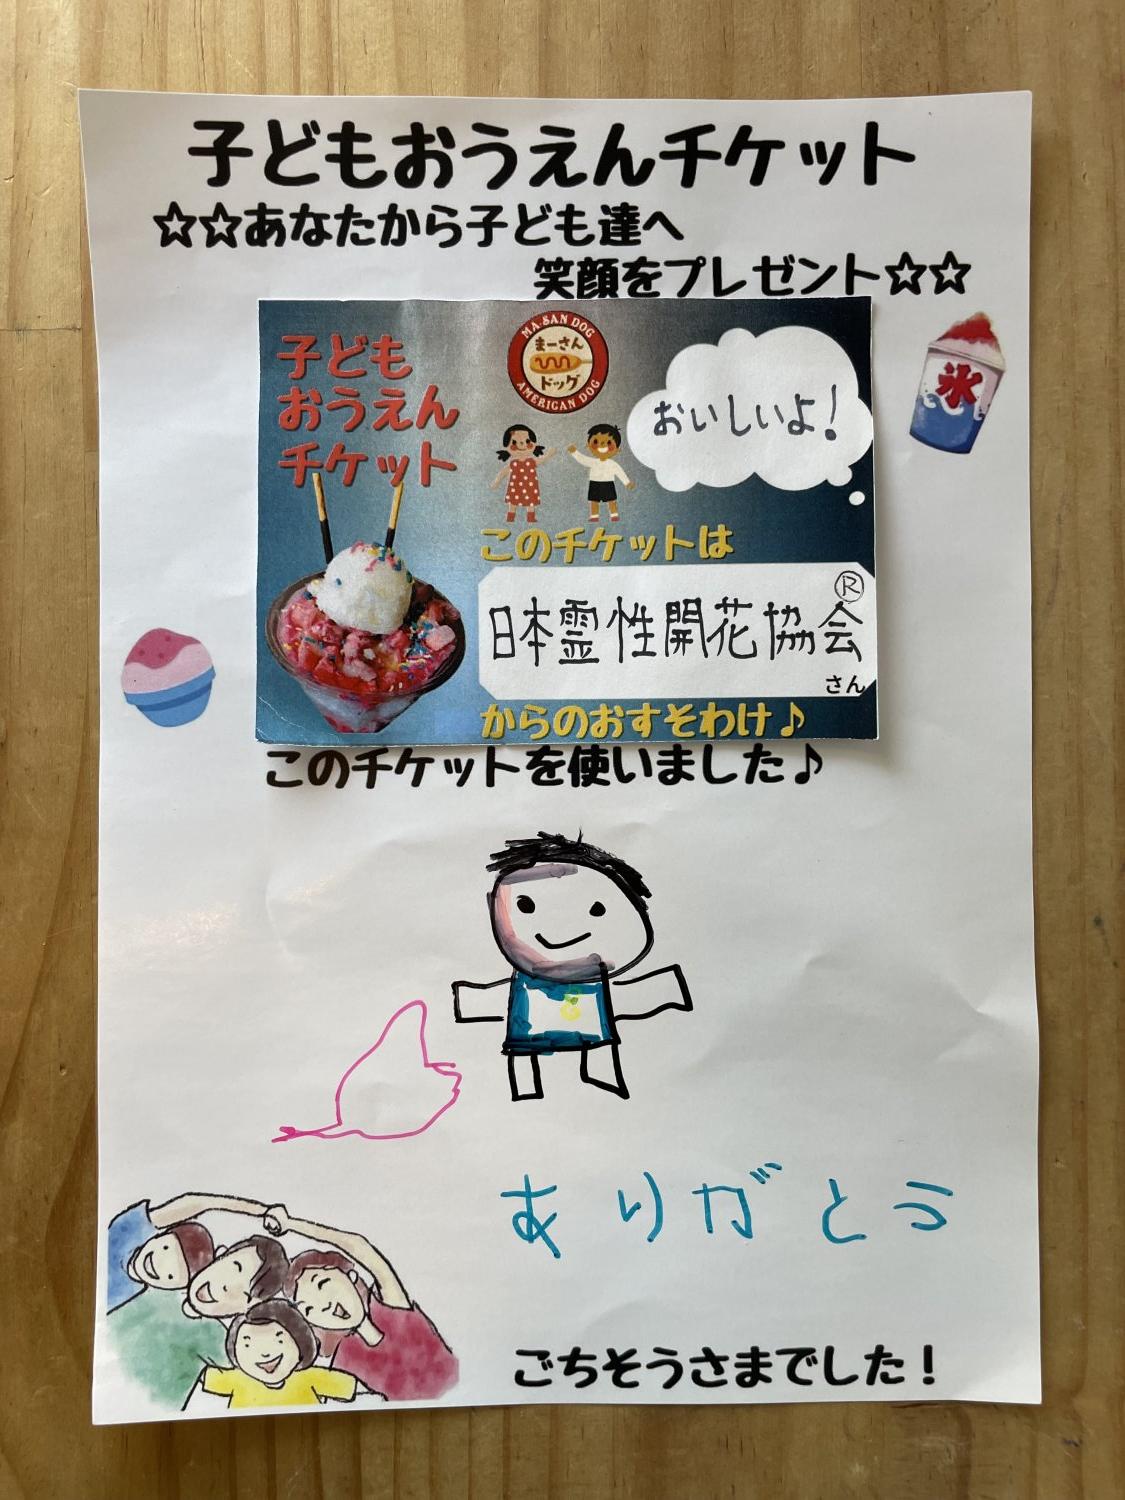 子どもおうえんチケット
☆☆あなたから子ども達へ
笑顔をプレゼント☆☆
子ども
おうえん
チケット
MA-SAN DOG
まーさん
ドッグ
AMERICAN DOG
おいしいよ!
氷
このチケットは
日本霊性開花協会®
さん
からのおすそわけ♪
このチケットを使いました♪
ありがとう
ごちそうさまでした!